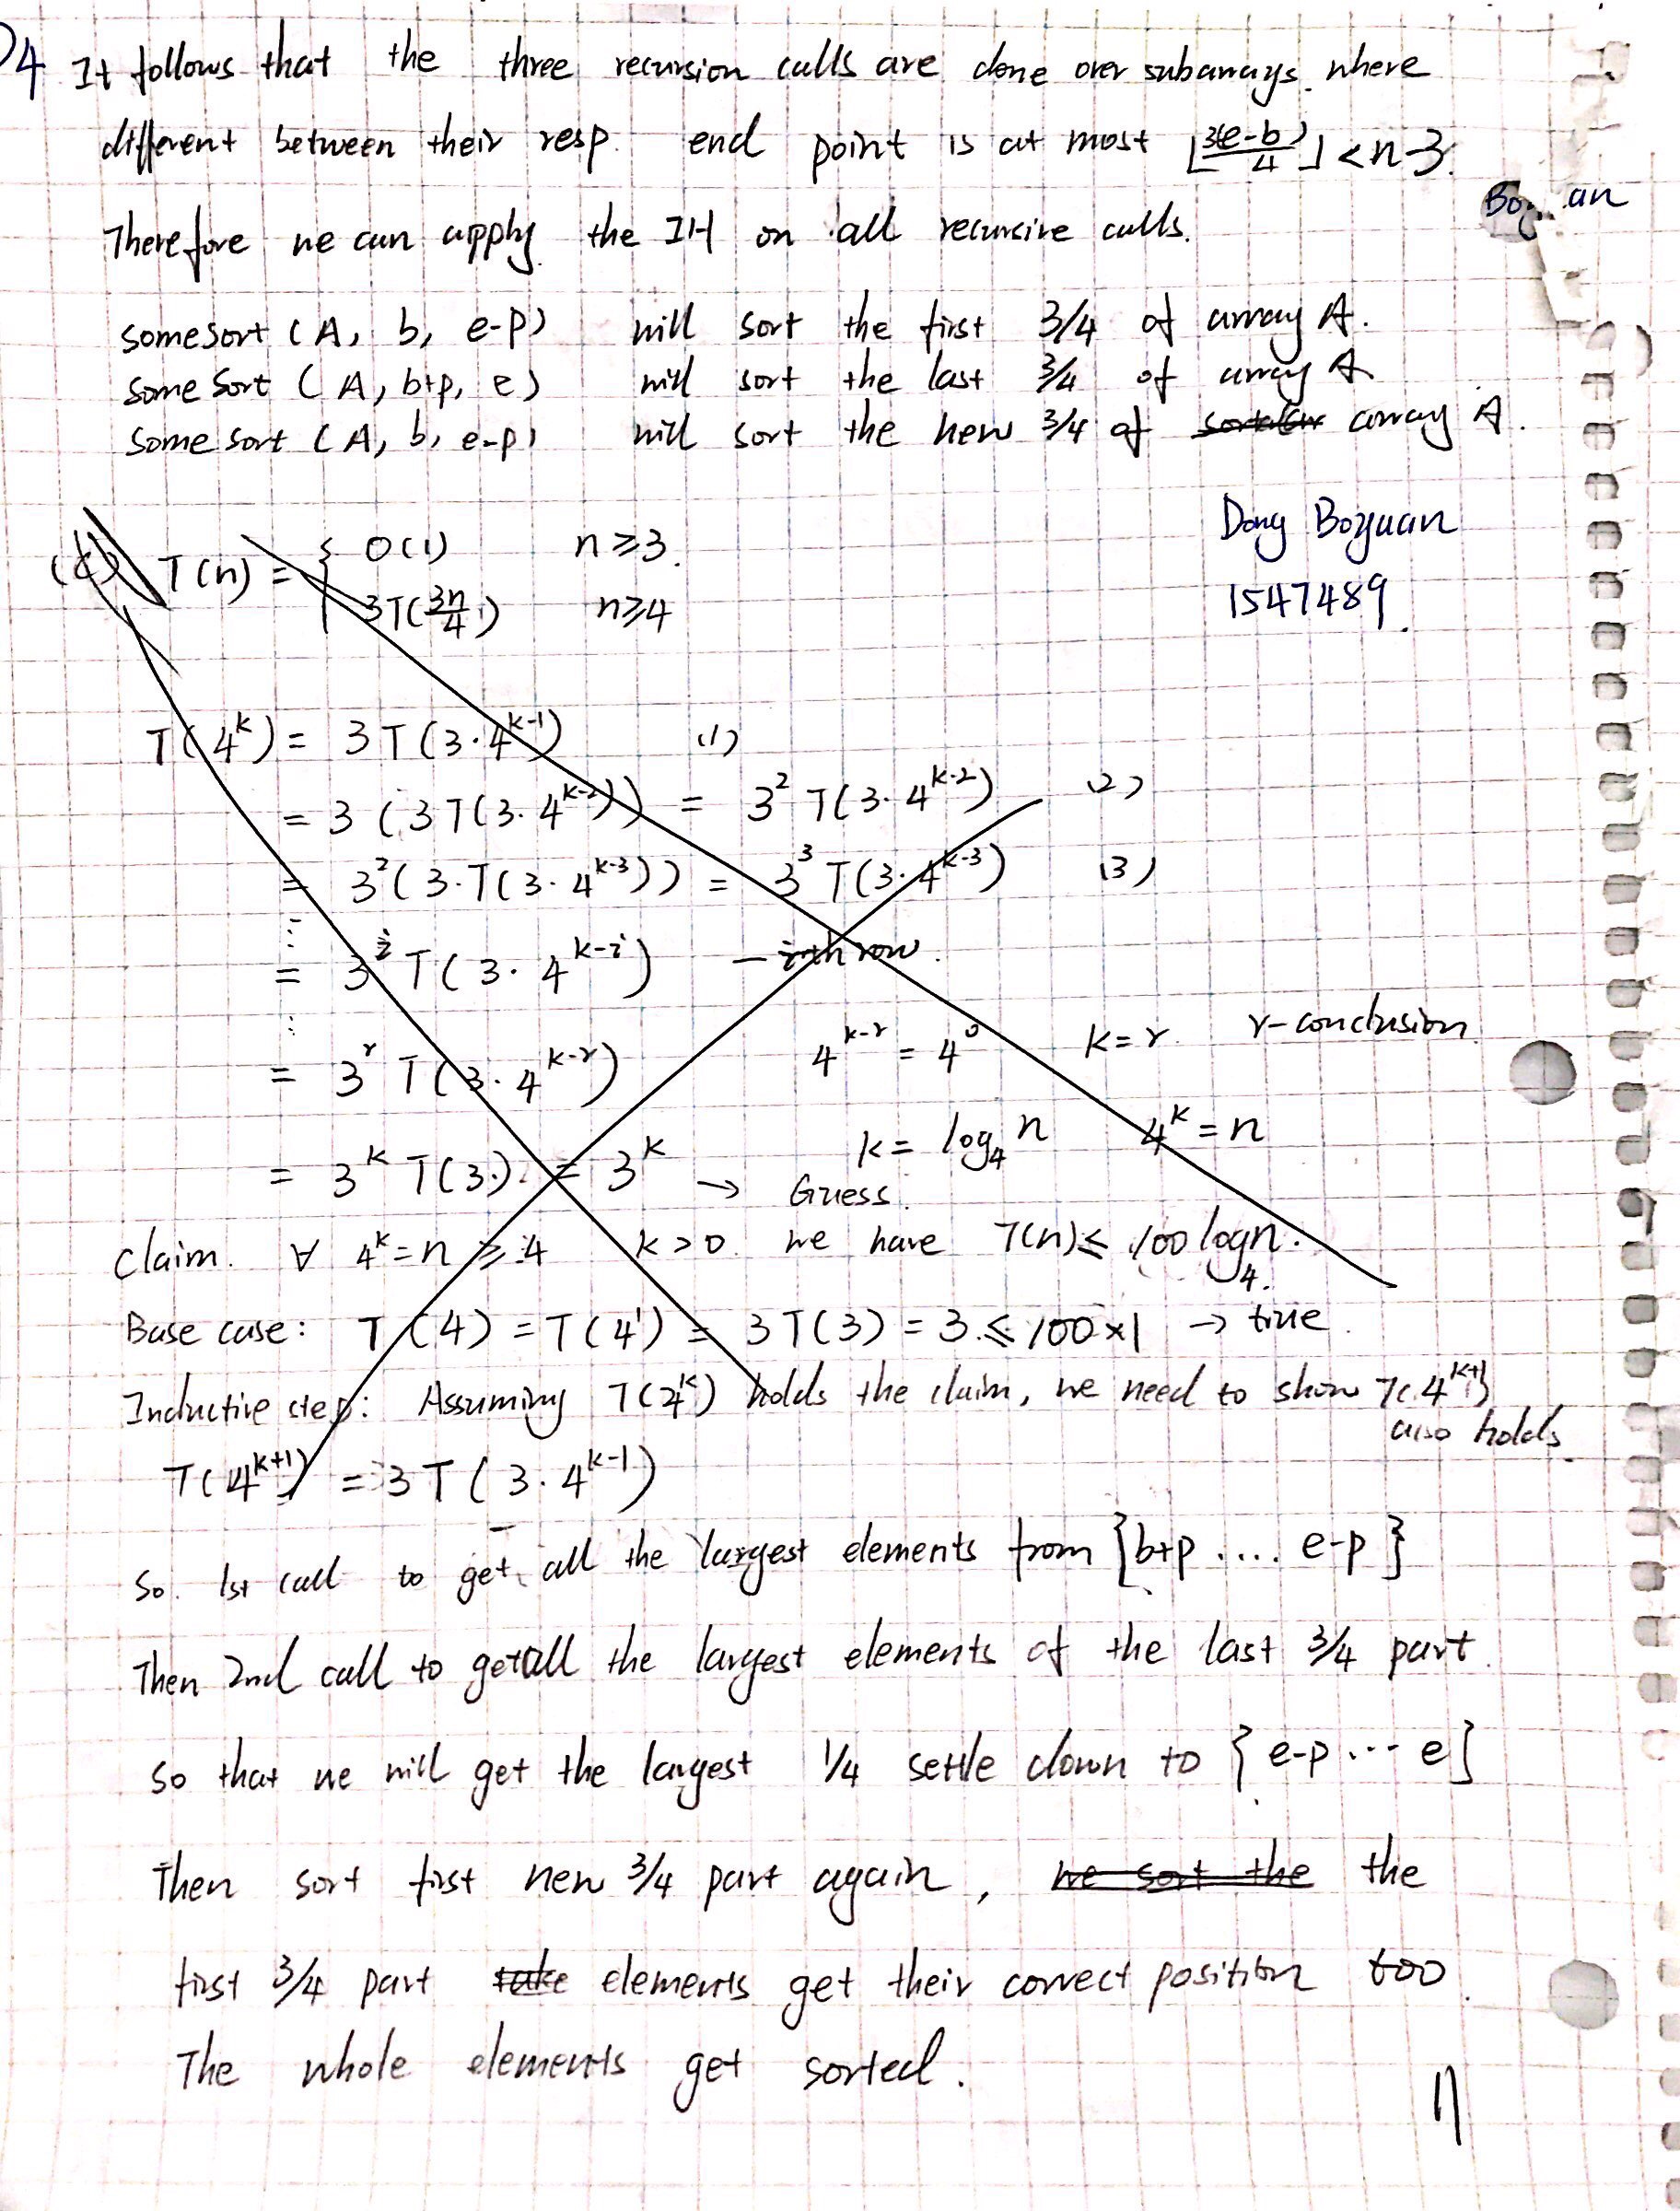 4 It follows that the three recursion calls are done over subarrays where
different between their resp. end point is at most ⌊3(e-b)/4⌋ < n-3.
Bo an
Therefore we can apply the IH on all recursive calls.
somesort (A, b, e-p) will sort the first 3/4 of array A.
some sort (A, b+p, e) will sort the last 3/4 of array A
some sort (A, b, e-p) will sort the new 3/4 of array A.
Dong Boyuan
1547489
(c) T(n) = { O(1) n≥3.
3T(3n/4) n≥4
T(4^k) = 3T(3·4^(k-1)) (1)
= 3(3T(3·4^(k-2))) = 3^2 T(3·4^(k-2)) (2)
= 3^2(3·T(3·4^(k-3))) = 3^3 T(3·4^(k-3)) (3)
⋮
= 3^i T(3·4^(k-i)) — i-th row.
⋮
= 3^r T(3·4^(k-r)) 4^(k-r) = 4^0 k=r. r-conclusion.
= 3^k T(3·). = 3^k → Guess. k = log_4 n 4^k = n
Claim. ∀ 4^k = n ≥ 4 k>0. we have T(n) ≤ 100 log_4 n.
Base case: T(4) = T(4^1) = 3T(3) = 3 ≤ 100×1 → true.
Inductive step: Assuming T(4^k) holds the claim, we need to show T(4^(k+1))
also holds
T(4^(k+1)) = 3T(3·4^(k-1))
So. 1st call to get all the largest elements from {b+p .... e-p}
Then 2nd call to get all the largest elements of the last 3/4 part.
so that we will get the largest 1/4 settle down to {e-p ··· e}
Then sort first new 3/4 part again, we sort the the
first 3/4 part take elements get their correct position too.
The whole elements get sorted.
11